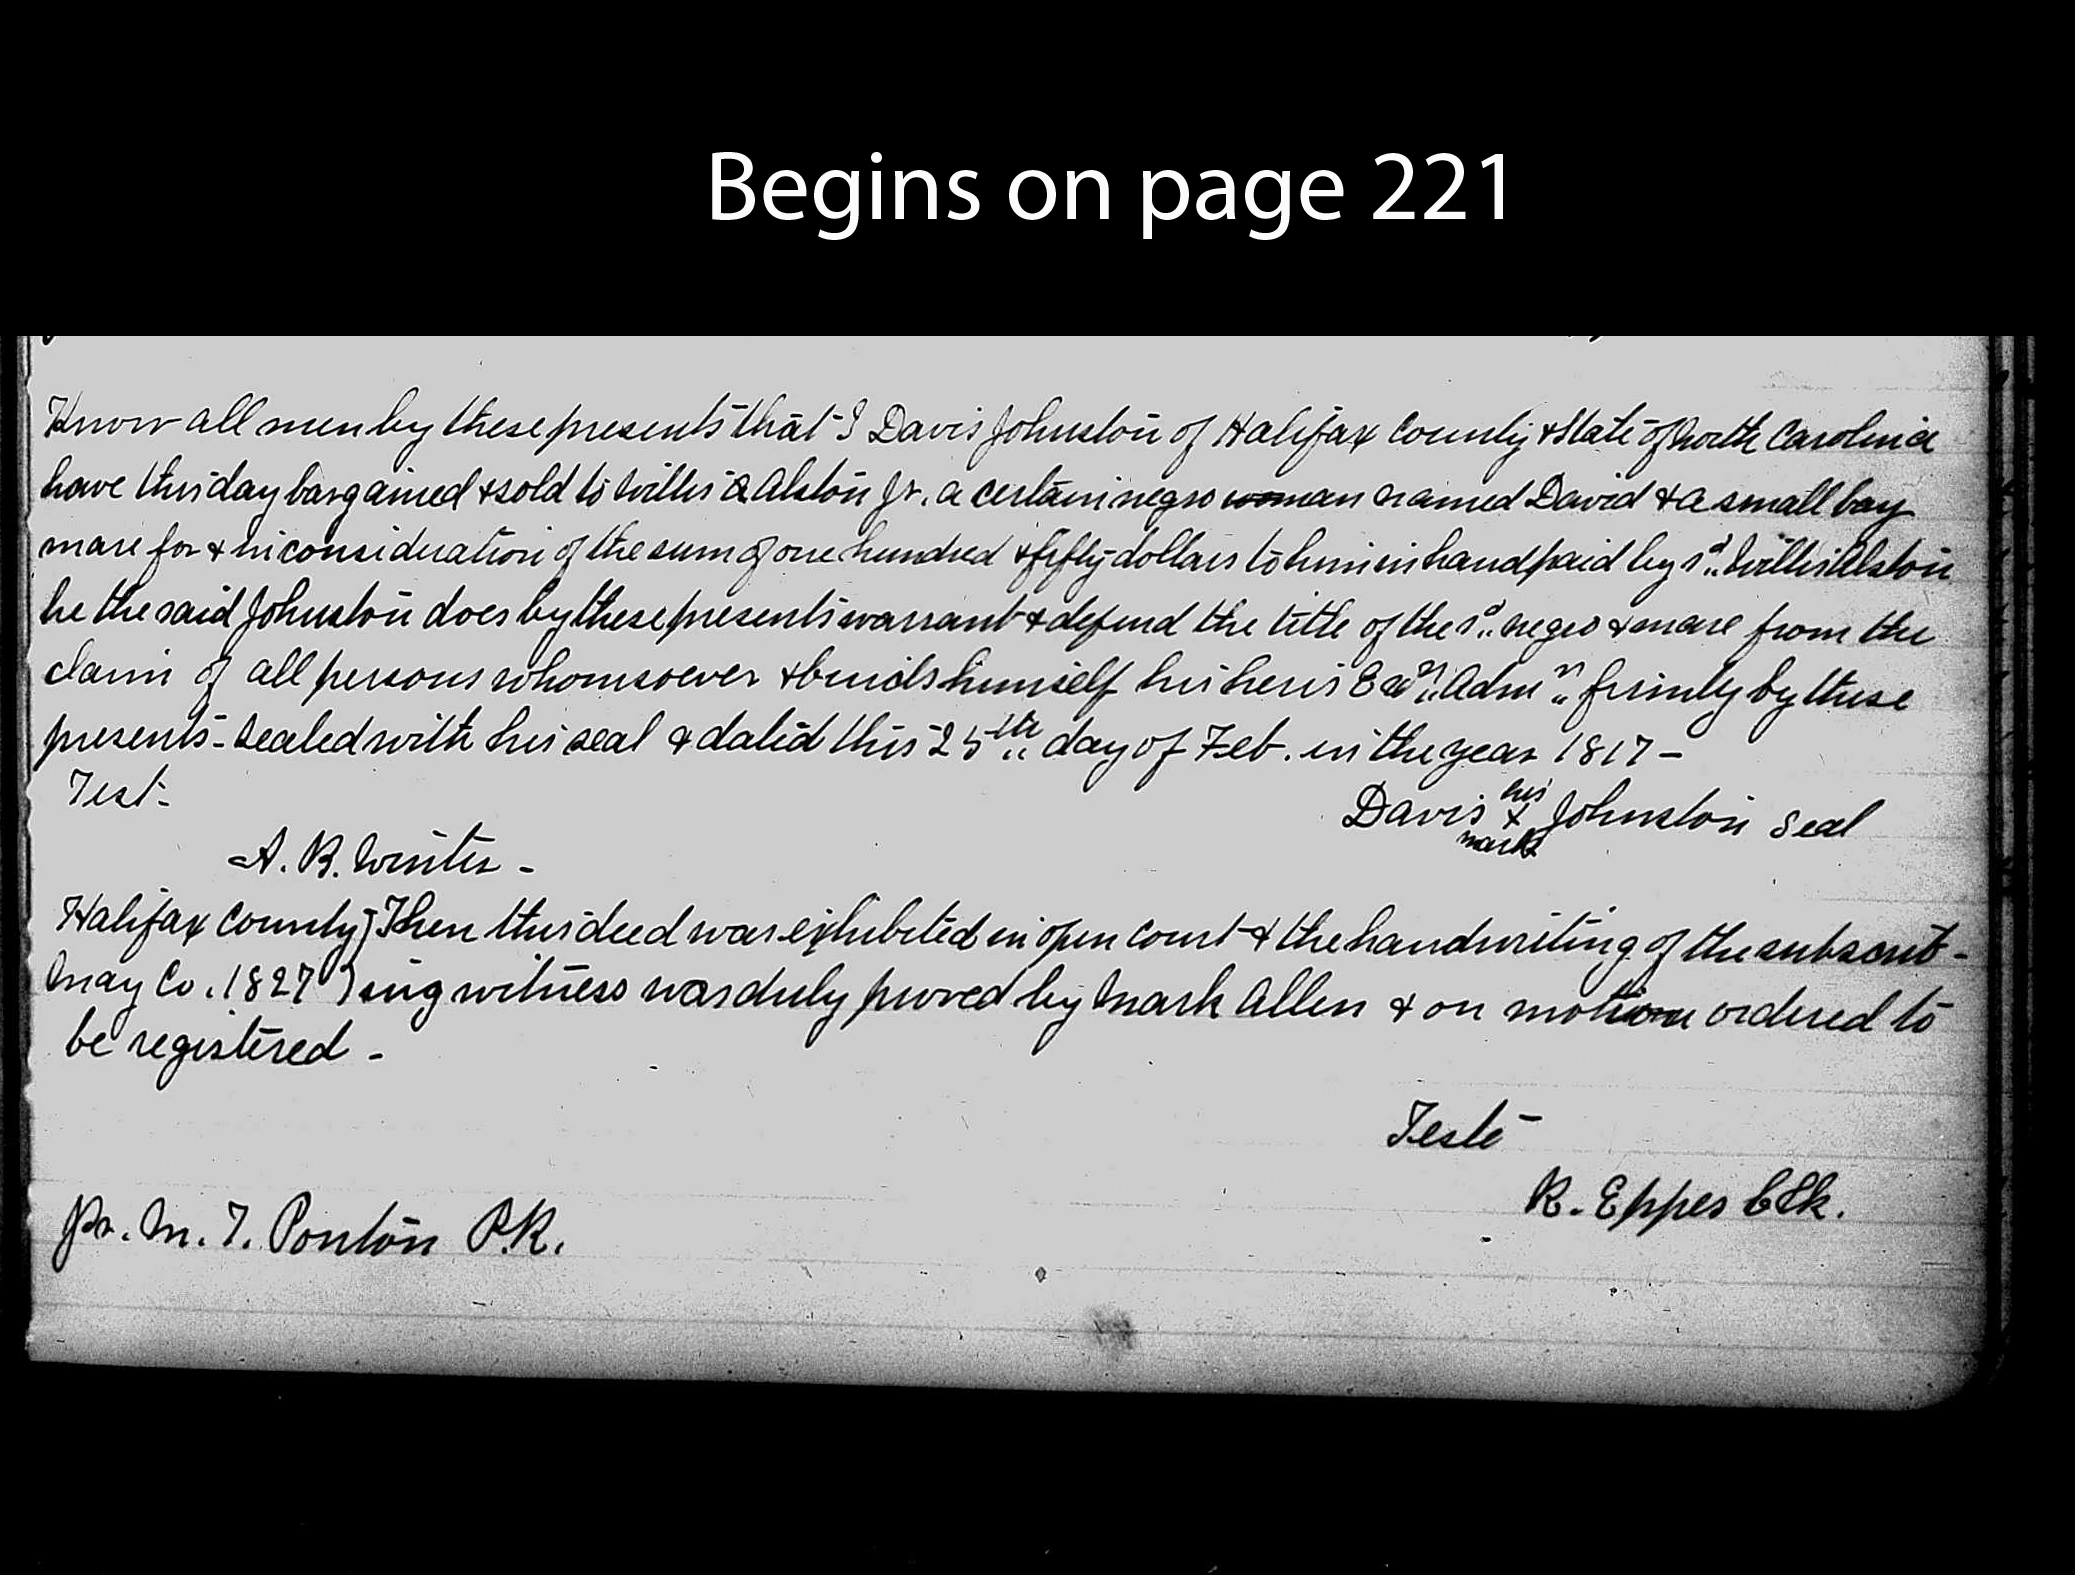 Begins on page 221
Know all men by these presents that I Davis Johnston of Halifax County & State of North Carolina
have this day bargained & sold to Willis Alston Jr. a certain negro woman named David & a small bay
mare for & in consideration of the sum of one hundred & fifty dollars to him in hand paid by sd.. Willis Alston
he the said Johnston does by these presents warrant & defend the title of the sd.. negro & mare from the
claim of all persons whomsoever & binds himself his heirs Exrs.. Admrs.. firmly by these
presents - sealed with his seal & dated this 25th.. day of Feb. in the year 1817 -
Test -
Davis his x mark Johnston Seal
A. B. Winter -
Halifax County } Then this deed was exhibited in open court & the handwriting of the subscrib-
May Co. 1827 } ing witness was duly proved by Mark Allen & on motion ordered to
be registered -
Teste -
R. Eppes Clk.
Jr. M. T. Ponton P.R.